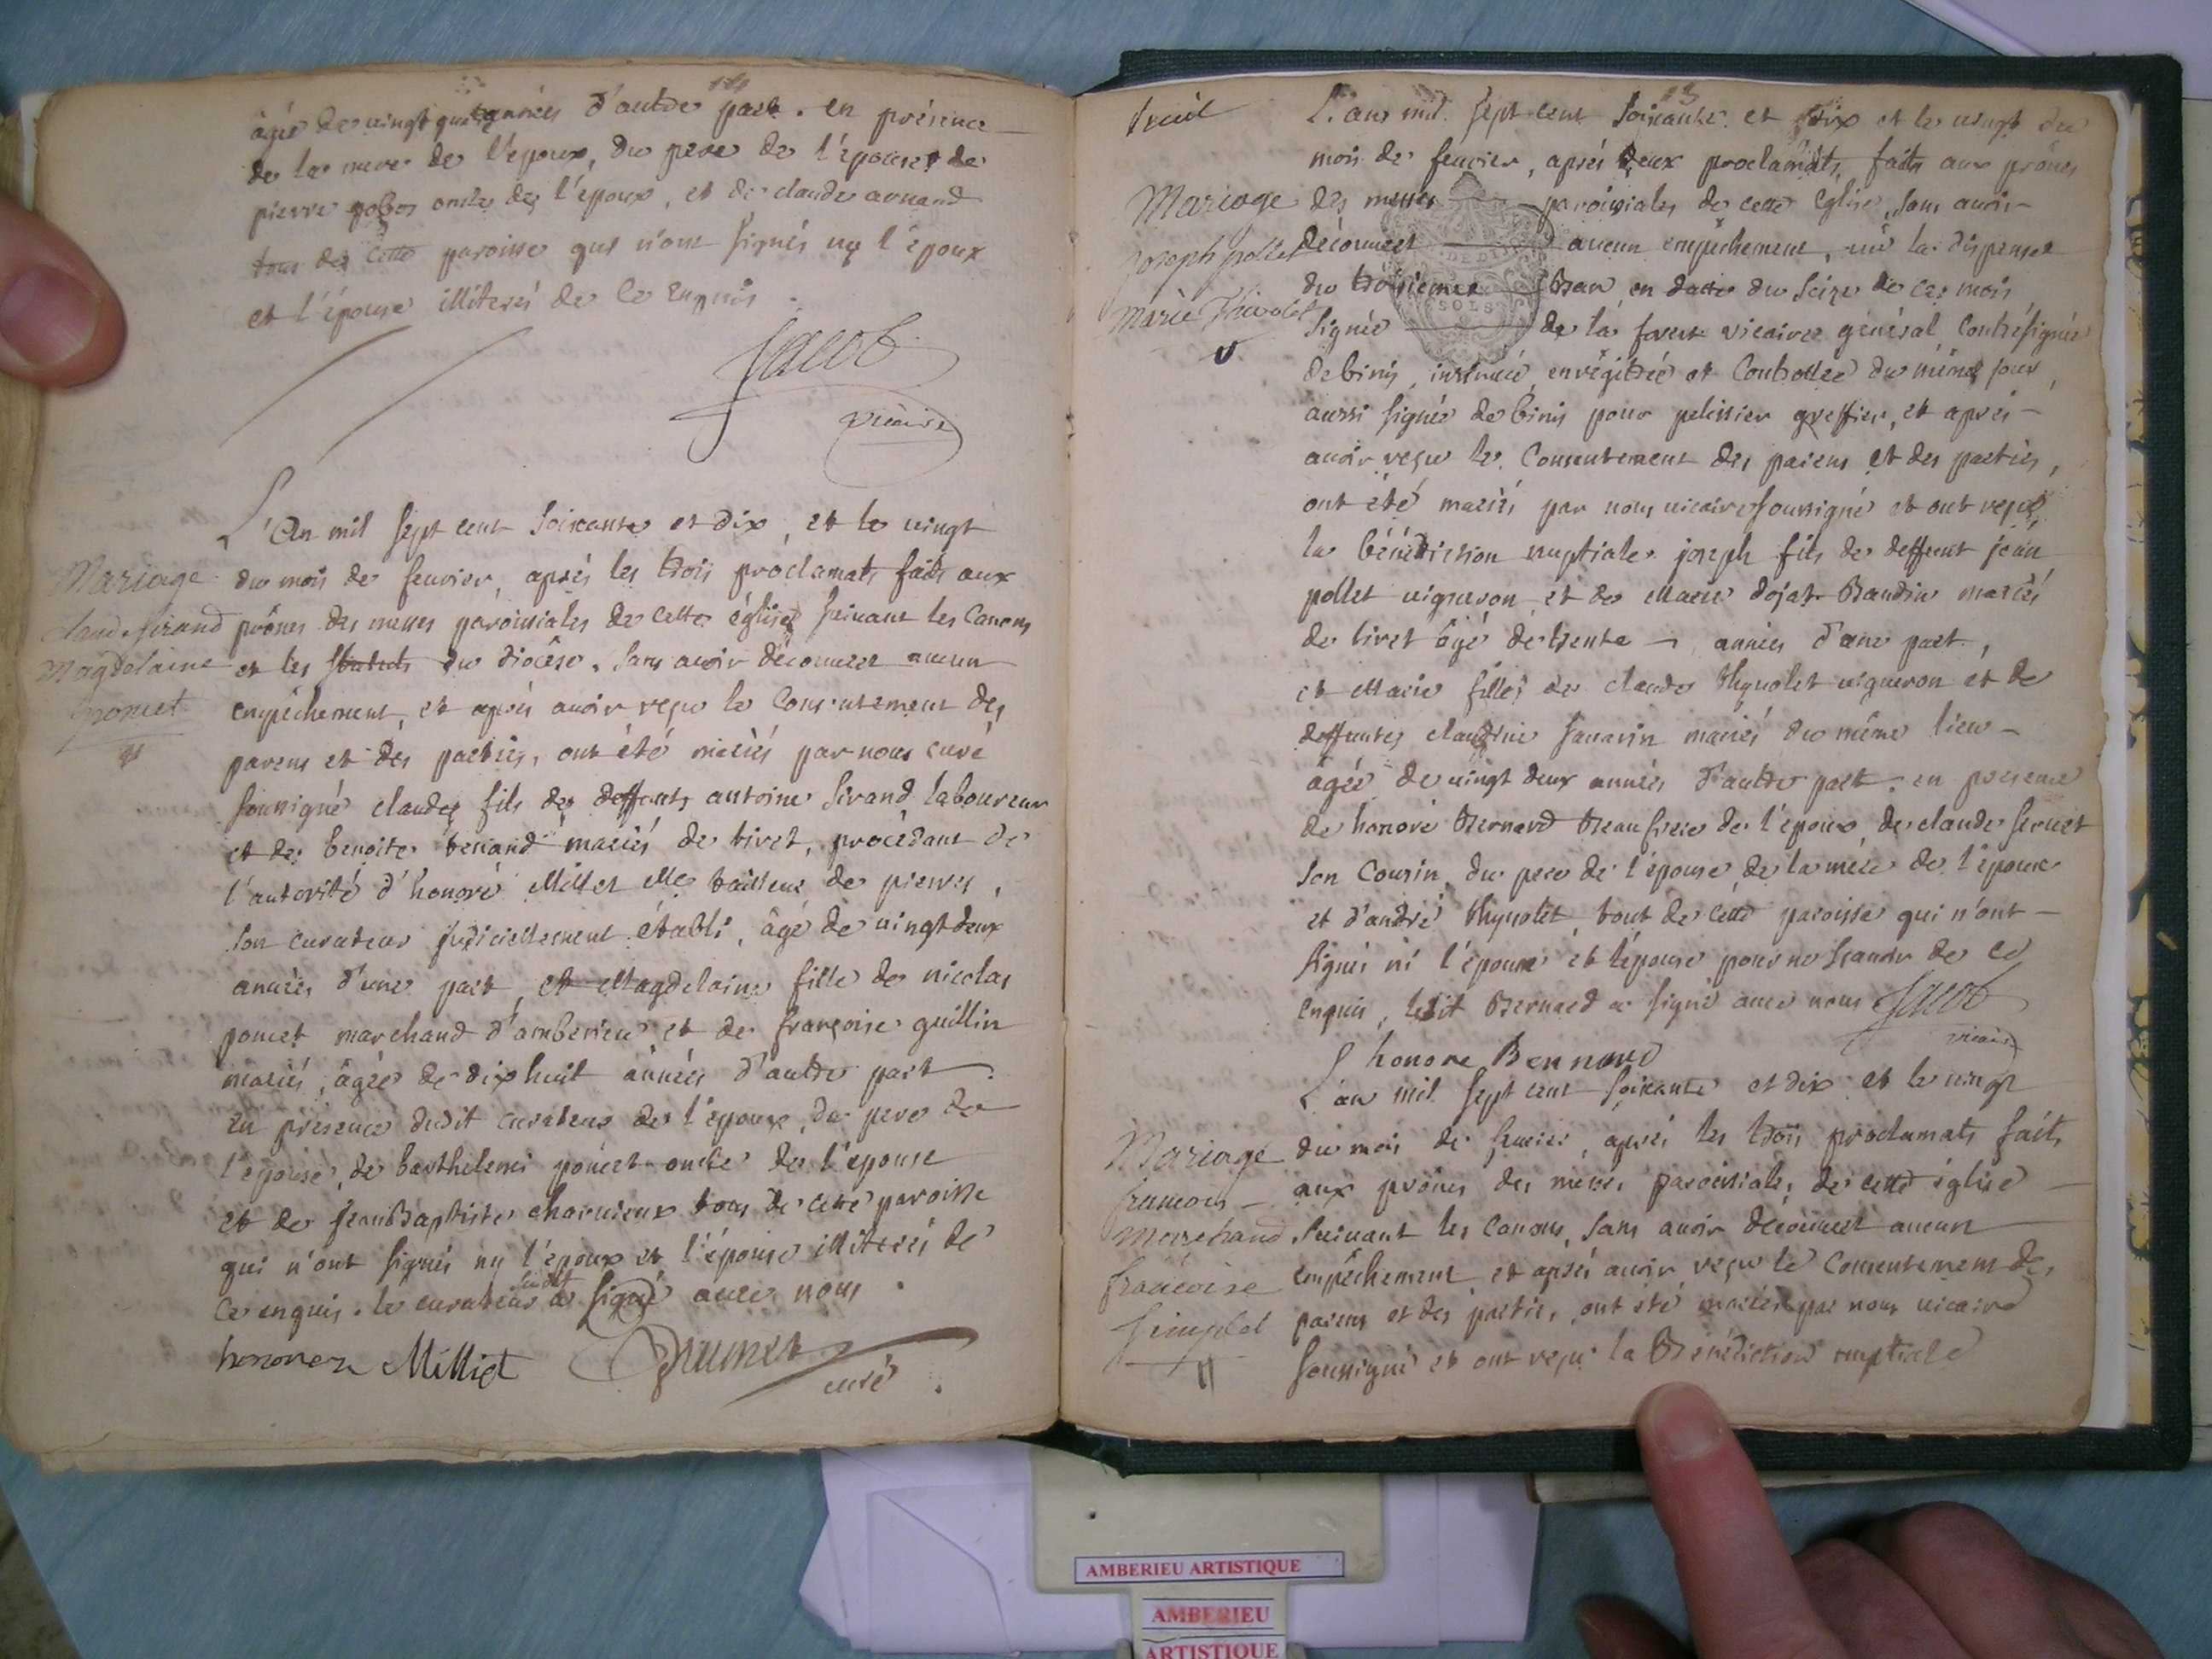 14
âgée de vingt quatre années d'autre part. en présence
de la mere de l'epoux, du pere de l'épouse, de
pierre oncle de l'époux, et de claude arnand
tous de cette paroisse qui n'ont signés ny l'époux
et l'épouse illiterés de ce enquis.
Jacob
vicaire
L'An mil sept cent soixante et dix, et le vingt
Mariage
claude sirand
Magdelaine
poncet
du mois de fevrier, aprés les trois proclamats faits aux
prônes des messes paroissiales de cette église suivant les Canons
et les statuts du diocèse, sans avoir découvert aucun
empêchement, et aprés avoir reçu le Consentement des
parens et des parties, ont été mariés par nous curé
soussigné claude fils de deffunts antoine sirand laboureur
et de benoite mariés de tiret, procédant de
l'autorité d'honoré Milliet Me tailleur de pierres,
son curateur judiciellement établi, âgé de vingt deux
années d'une part, et Magdelaine fille de nicolas
poncet marchand d'amberieu et de françoise guillin
mariés, âgée de dix huit années d'autre part.
en présence dudit curateur de l'epoux, du pere de
l'épouse, de barthelemi poncet oncle de l'épouse
et de jean Baptiste charvieux tous de cette paroisse
qui n'ont signés ny l'époux et l'épouse illiterés de
ce enquis. le curateur susdit a signé avec nous.
honorez Milliet
curé
13
L'an mil sept cent soixante et dix et le vingt du
mois de fevrier, aprés deux proclamats, faits aux prônes
Mariage
joseph pollet
Marie Thivolet
des messes paroissiales de cette église, sans avoir
découvert aucun empêchement, vû la dispense
du troisieme Ban en datte du seize de ce mois,
signée de la forest vicaire général, Contresignée
debinis, insinuée, enregitrée et Controllée du même jour,
aussi signée de binis pour pelissier greffier, et aprés
avoir reçu le Consentement des parens et des parties,
ont été mariés par nous vicaire soussigné et ont reçu
la bénédiction nuptiale joseph fils de deffunt jean
pollet vigneron et de Marie dojat Baudin mariés
de tiret âgé de trente années d'une part,
et Marie fille de claude thyvolet vigneron et de
deffunte claudine savarin mariés du même lieu
âgée de vingt deux années d'autre part. en presence
de honoré Bernard Beaufrere de l'époux, de claude servet
son Cousin, du pere de l'épouse, de la mére de l'époux
et d'andré thyvolet, tout de cette paroisse qui n'ont
signés ni l'époux et l'épouse pour ne sçavoir de ce
enquis, ledit Bernard a signé avec nous Jacob
vicaire
honore Bernard
L'an mil sept cent soixante et dix et le vingt
Mariage
francois
Marchand
francoise
simplet
du mois de fevrier, aprés les trois proclamats faits
aux prônes des messes paroissiales de cette église
suivant les Canons, sans avoir découvert aucun
empêchement et aprés avoir reçu le Consentement des
parens et des parties, ont été mariés par nous vicaire
soussigné et ont reçu la Bénédiction nuptiale
AMBERIEU ARTISTIQUE
AMBERIEU
ARTISTIQUE